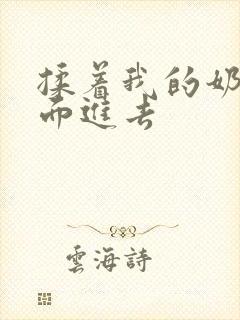 揉着我的奶
而進去
雲海詩